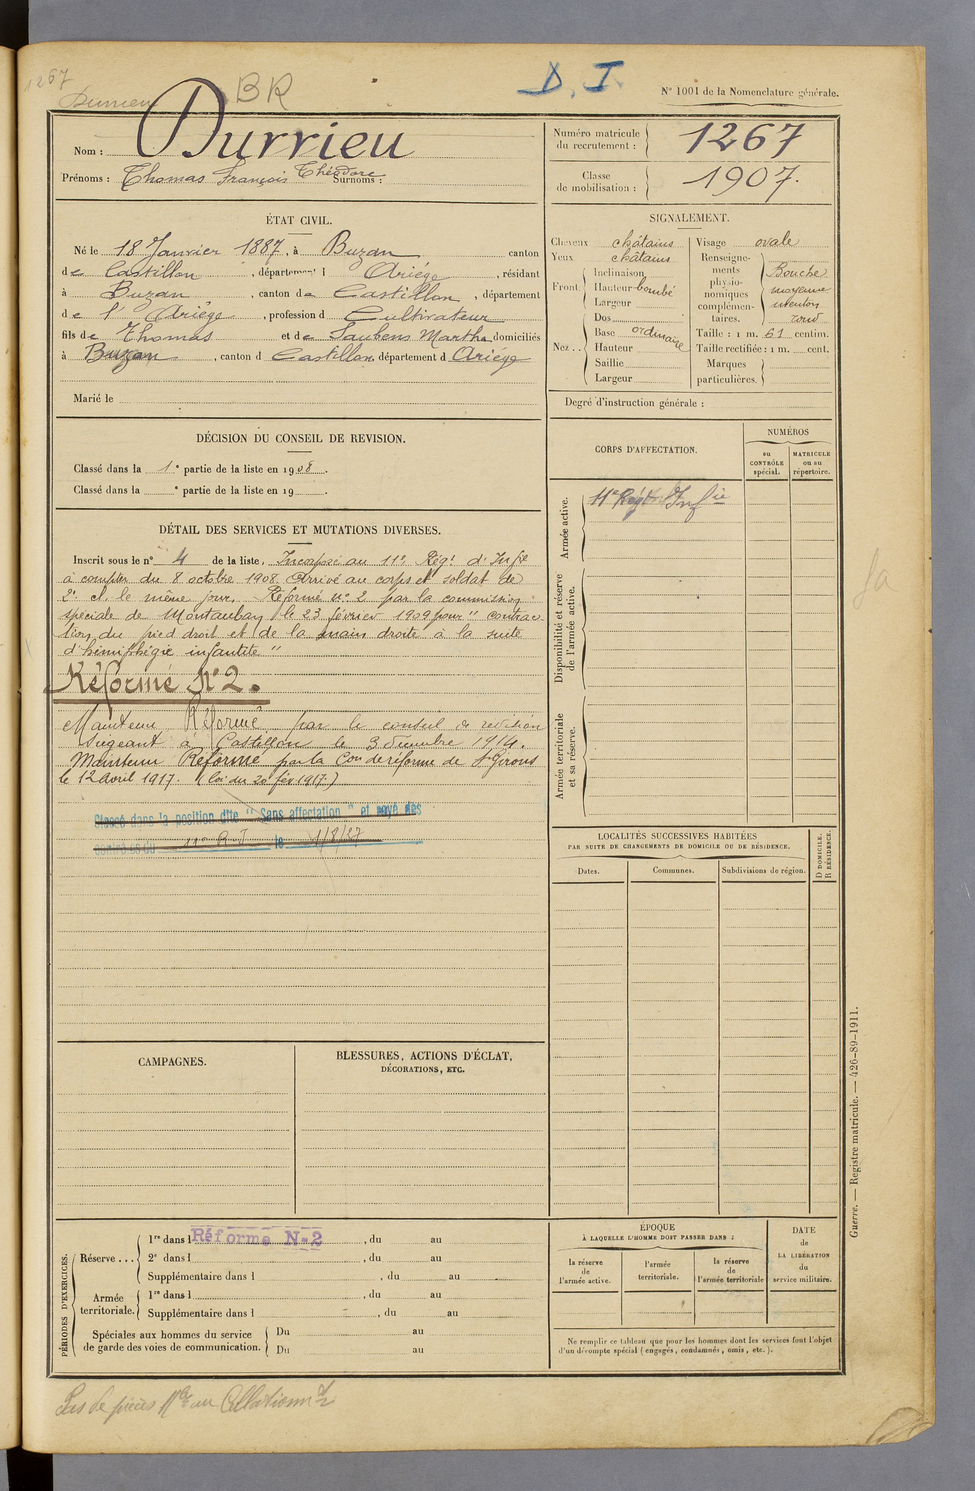 1267
Durrieu
BR
D. I.
N° 1001 de la Nomenclature générale.
Nom : Durrieu
Prénoms : Thomas François Théodore Surnoms :
Numéro matricule du recrutement : 1267
Classe de mobilisation : 1907.
ÉTAT CIVIL.
Né le 18 Janvier 1887, à Buzan canton
de Castillon, département Ariége, résidant
à Buzan, canton de Castillon, département
de l'Ariége, profession d Cultivateur
fils de Thomas et de Saubens Martha domiciliés
à Buzan, canton d Castillon département d Ariége
Marié le
SIGNALEMENT.
Cheveux châtains
Yeux châtains
Front
Inclinaison
Hauteur bombé
Largeur
Nez
Dos
Base ordinaire
Hauteur
Saillie
Largeur
Visage ovale
Renseignements physionomiques complémentaires.
Bouche
moyenne
menton
rond
Taille : 1 m. 61 centim.
Taille rectifiée : 1 m. cent.
Marques particulières.
Degré d'instruction générale :
DÉCISION DU CONSEIL DE REVISION.
Classé dans la 1e partie de la liste en 1908.
Classé dans la e partie de la liste en 19 .
DÉTAIL DES SERVICES ET MUTATIONS DIVERSES.
Inscrit sous le n° 4 de la liste. Incorporé au 11e Régt d'Infie
à compter du 8 octobre 1908. Arrivé au corps et soldat de
2e cl. le même jour. Réformé n° 2 par la commission
spéciale de Montauban le 23 février 1909 pour "contrac
tion du pied droit et de la main droite à la suite
d'hémiphégie infantile"
Réformé N°2.
Maintenu Réformé par le conseil de révision
siégeant à Castillon le 3 décembre 1914.
Maintenu Réformé par la Con de réforme de St Girons
le 12 avril 1917. (loi du 20 fév. 1917.)
Classé dans la position dite "Sans affectation" et rayé des
contrôles du 11e R.I. le 1/8/27
CORPS D'AFFECTATION.
NUMÉROS
au CONTRÔLE spécial.
MATRICULE ou au répertoire.
Armée active.
11e Régt Infie
Disponibilité et réserve de l'armée active.
Armée territoriale et sa réserve.
LOCALITÉS SUCCESSIVES HABITÉES
PAR SUITE DE CHANGEMENTS DE DOMICILE OU DE RÉSIDENCE.
Dates.
Communes.
Subdivisions de région.
D DOMICILE.
R RÉSIDENCE.
CAMPAGNES.
BLESSURES, ACTIONS D'ÉCLAT,
DÉCORATIONS, ETC.
PÉRIODES D'EXERCICES.
Réserve ...
1re dans l Réformé N°2, du au
2e dans l , du au
Supplémentaire dans l , du au
Armée territoriale.
1re dans l , du au
Supplémentaire dans l , du au
Spéciales aux hommes du service de garde des voies de communication.
Du au
Du au
ÉPOQUE
À LAQUELLE L'HOMME DOIT PASSER DANS :
la réserve de l'armée active.
l'armée territoriale.
la réserve de l'armée territoriale
DATE de LA LIBÉRATION du service militaire.
Ne remplir ce tableau que pour les hommes dont les services font l'objet
d'un décompte spécial (engagés, condamnés, omis, etc.).
Guerre. — Registre matricule. — 426-89-1911.
Pas de pièces